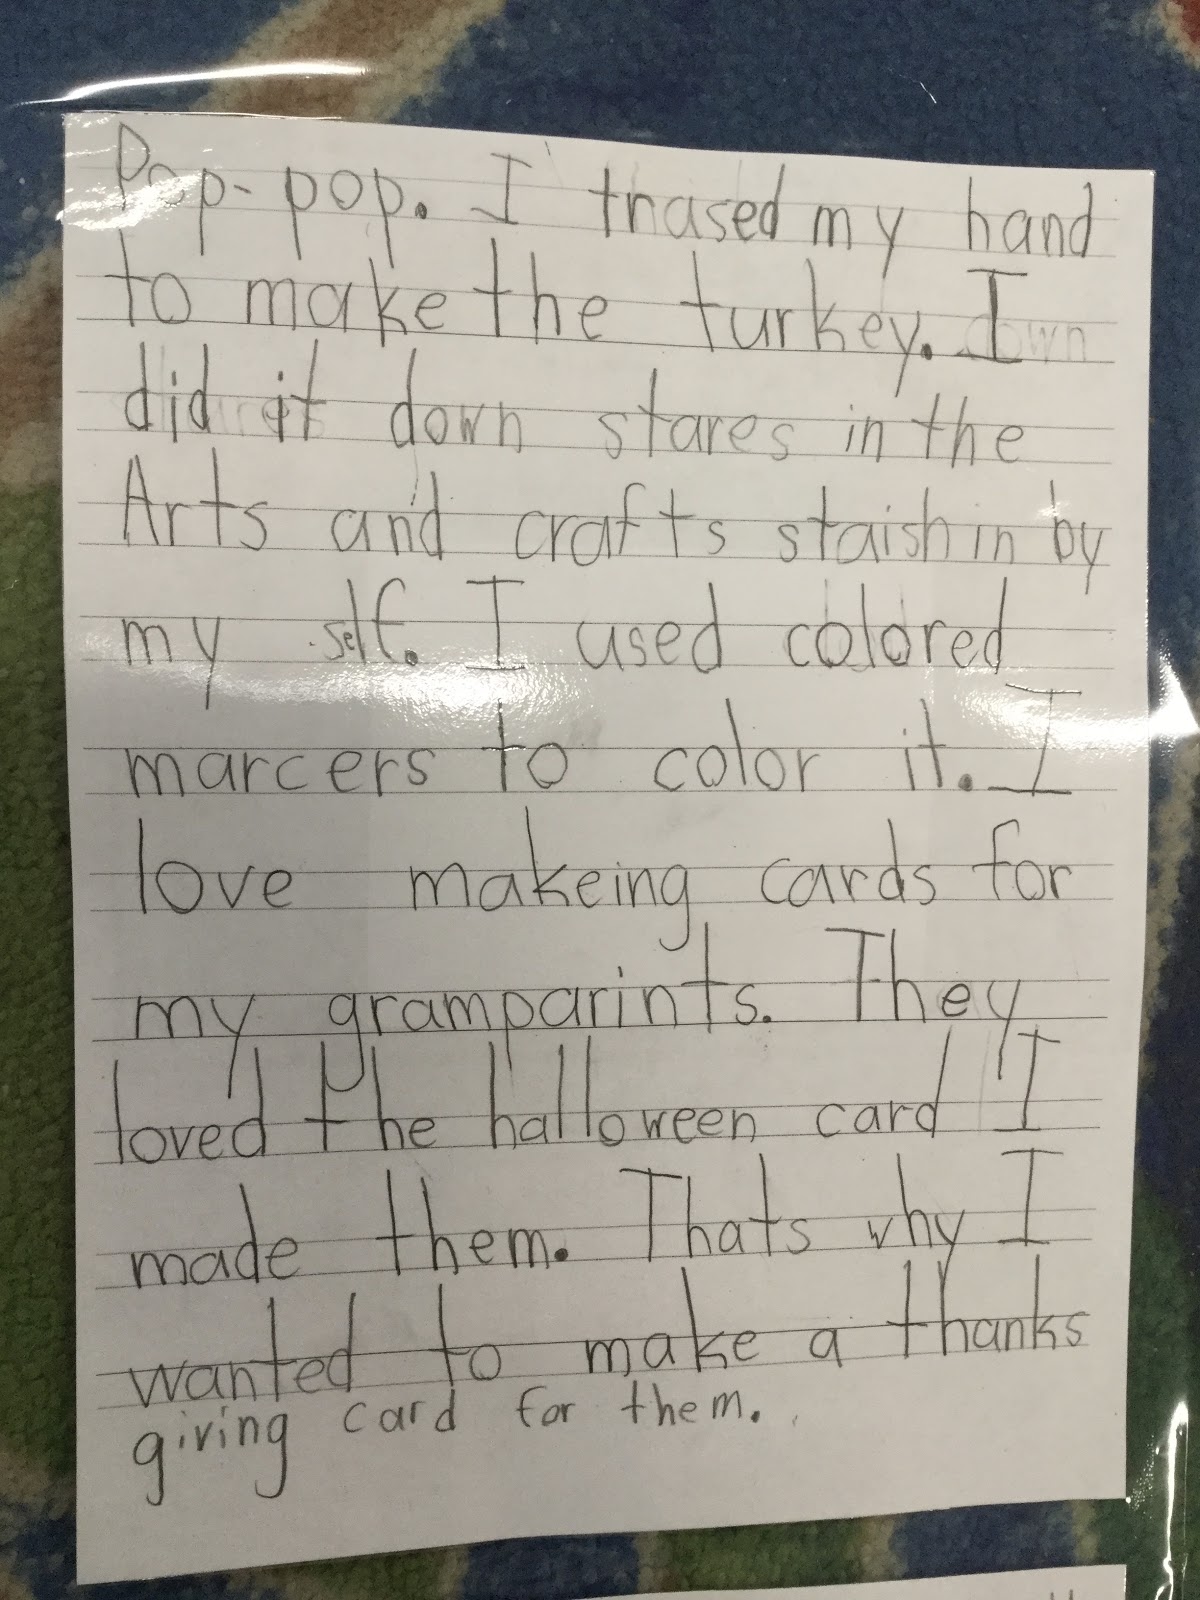 Pop-pop. I trased my hand
to make the turkey. I
did it down stares in the
Arts and crafts staishin by
my self. I used colored
marcers to color it. I
love makeing cards for
my gramparints. They
loved the halloween card I
made them. Thats why I
wanted to make a thanks
giving card for them.